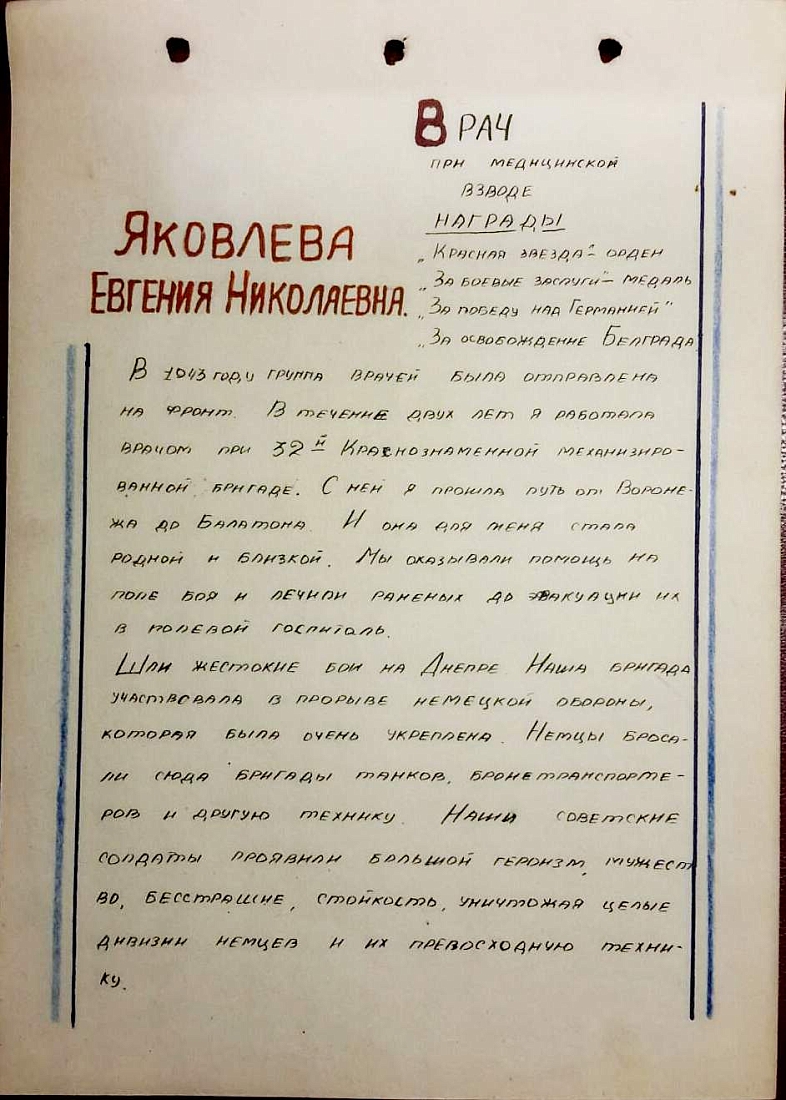 Врач
при медицинской
взводе
Награды
Яковлева
Евгения Николаевна.
„Красная звезда"- орден
„За боевые заслуги"- медаль
„За победу над Германией"
„За освобождение Белграда
В 1943 году группа врачей была отправлена
на фронт. В течение двух лет я работала
врачом при 32й Краснознаменной механизиро-
ванной бригаде. С ней я прошла путь от Вороне-
жа до Балатона. И она для меня стала
родной и близкой. Мы оказывали помощь на
поле боя и лечили раненых до эвакуации их
в полевой госпиталь.
Шли жестокие бои на Днепре. Наша бригада
участвовала в прорыве немецкой обороны,
которая была очень укреплена. Немцы броса-
ли сюда бригады танков, бронетранспорте-
ров и другую технику. Наши советские
солдаты проявили большой героизм, мужест
во, бесстрашие, стойкость, уничтожая целые
дивизии немцев и их превосходную техни-
ку.